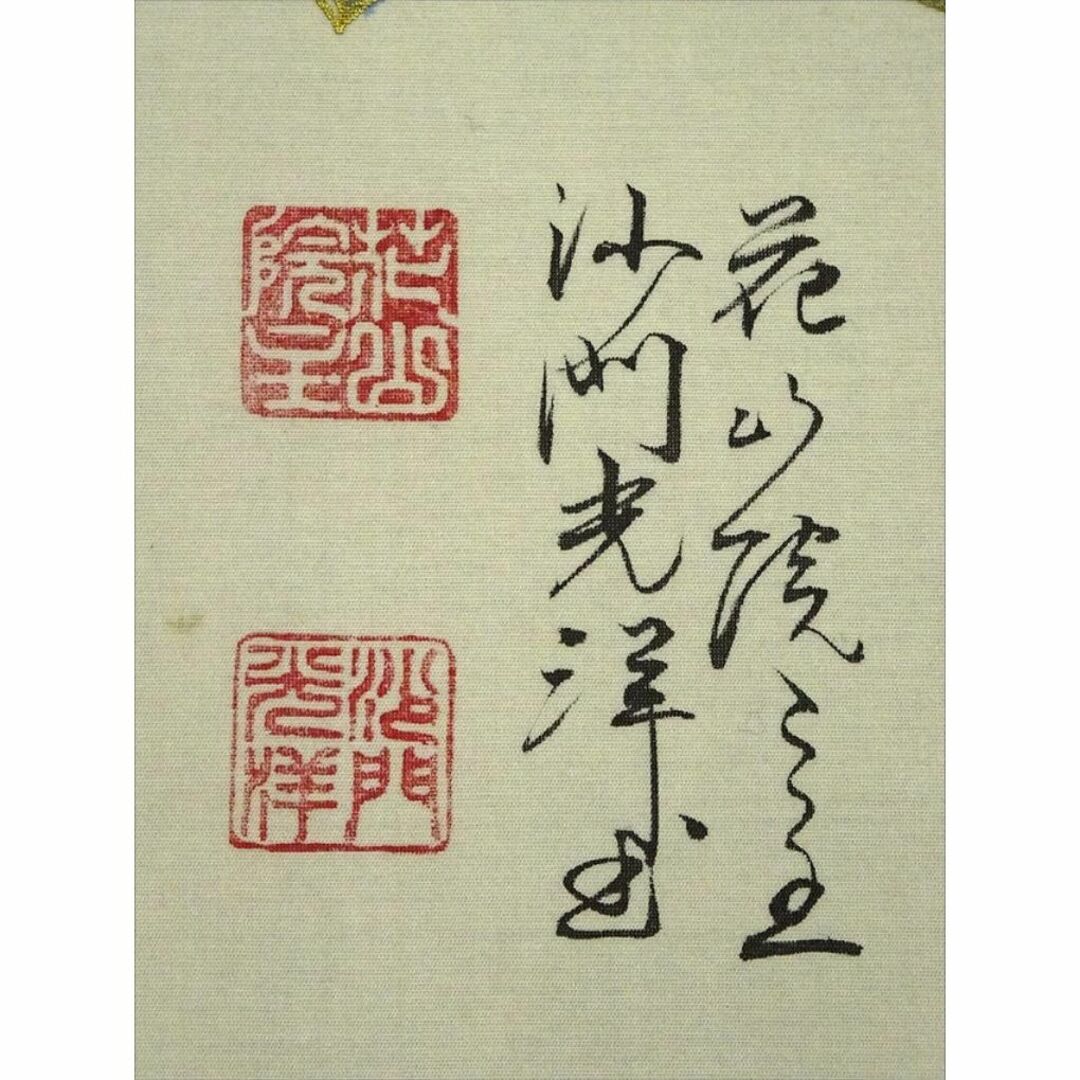 花山院之主
沙門光洋書
花山
院主
沙門
光洋